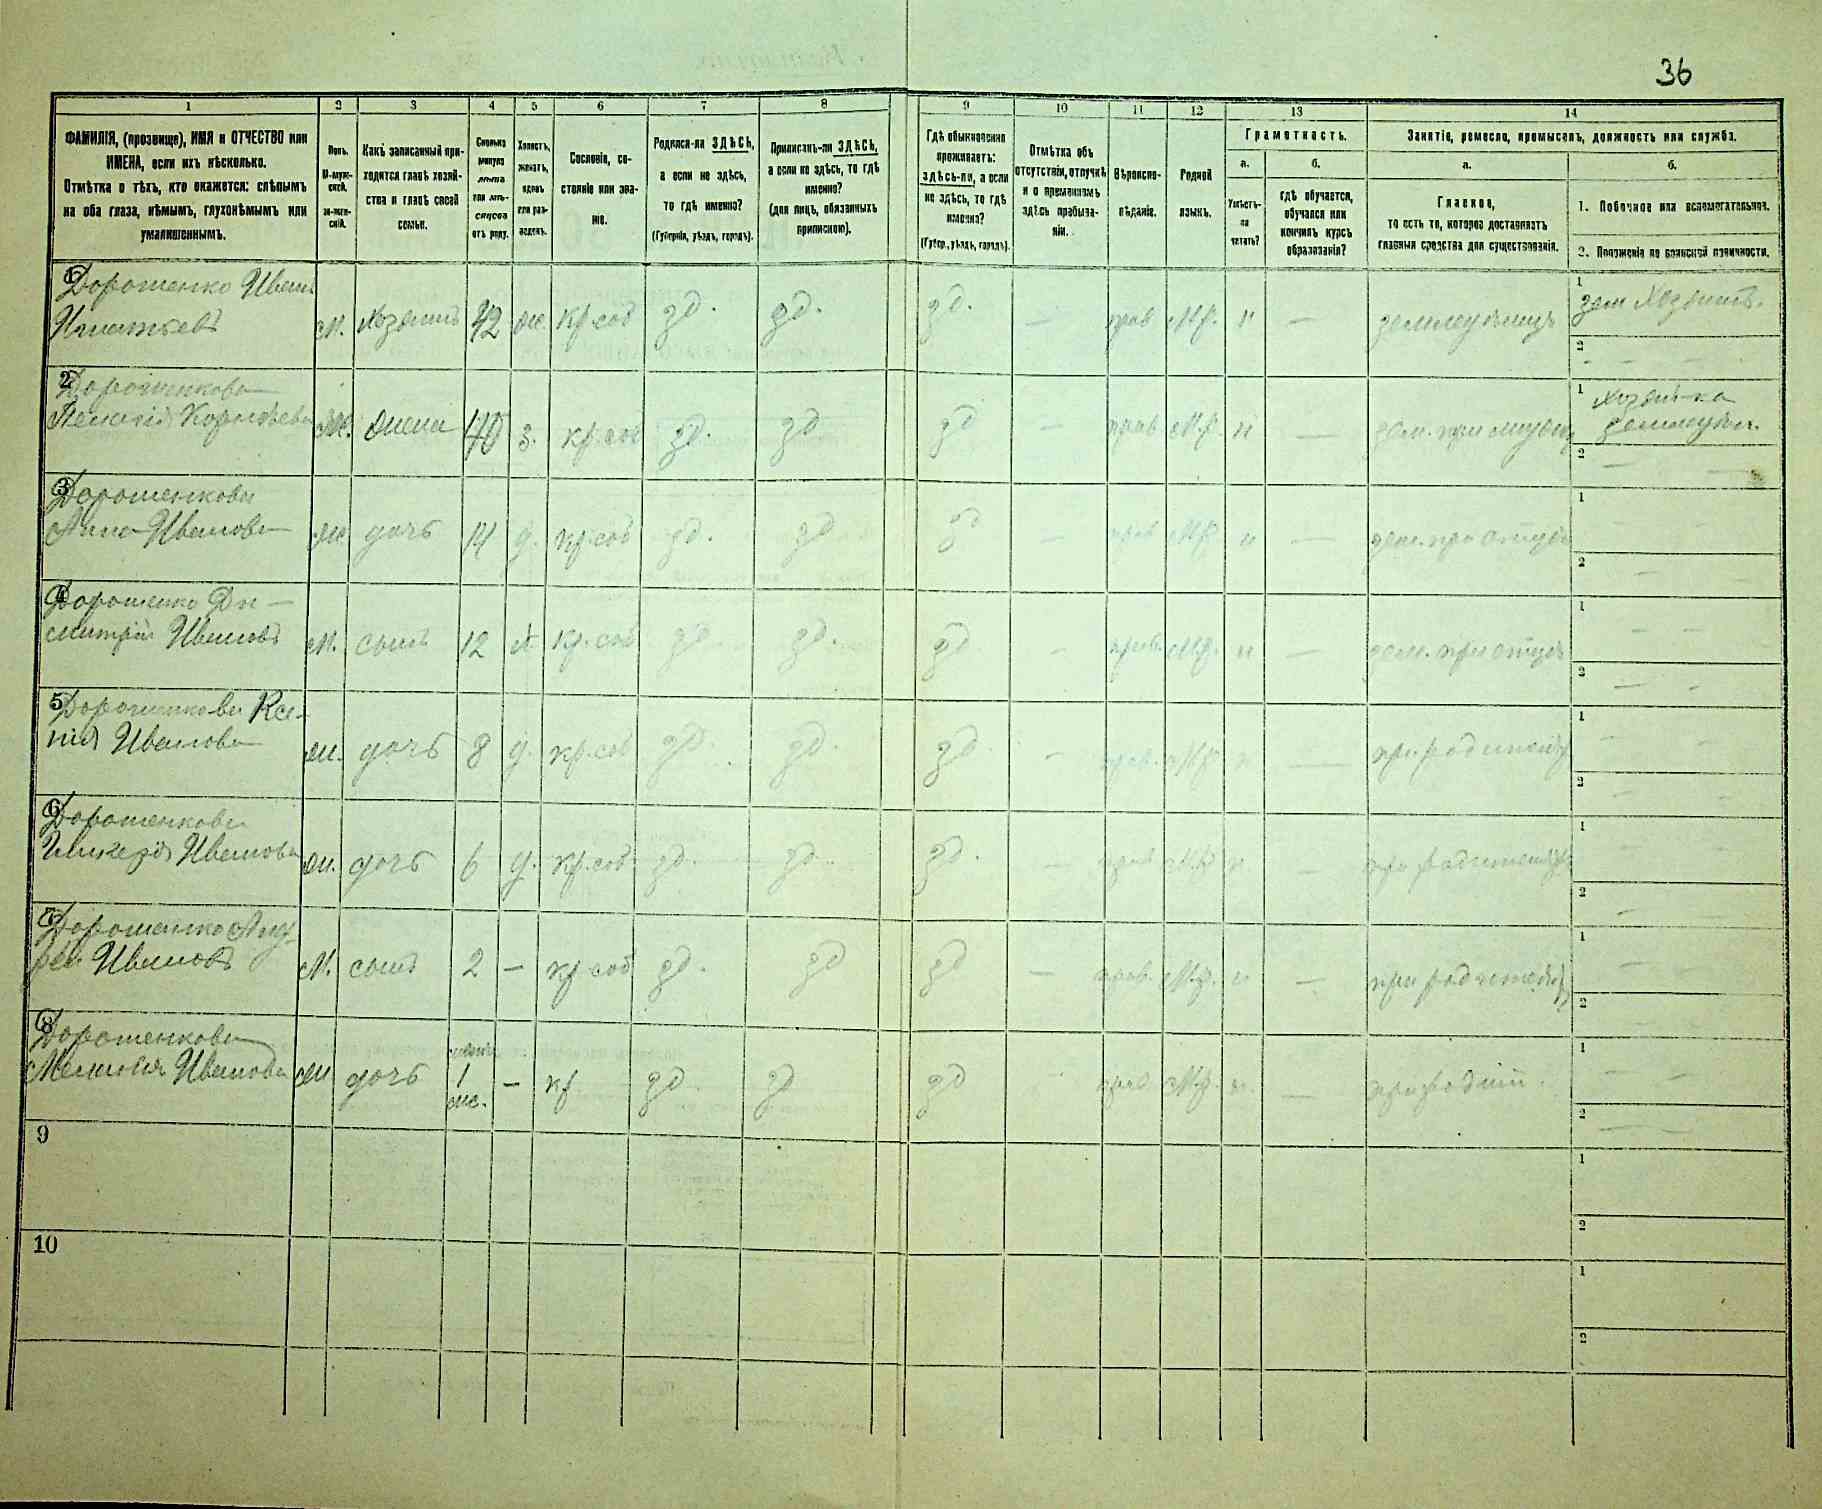 36
1 2 3 4 5 6 7 8 9 10 11 12 13 14
ФАМИЛІЯ, (прозвище), ИМЯ и ОТЧЕСТВО или
ИМЕНА, если ихъ нѣсколько.
Отмѣтка о тѣхъ, кто окажется: слѣпымъ
на оба глаза, нѣмымъ, глухонѣмымъ или
умалишеннымъ.
Полъ.
М-муж-
ской.
Ж-жен-
скій.
Какъ записанный при-
ходится главѣ хозяй-
ства и главѣ своей
семьи.
Сколько
минуло
лѣтъ
или мѣ-
сяцевъ
отъ роду.
Холостъ,
женатъ,
вдовъ
или раз-
веденъ.
Сословіе, со-
стояніе или зва-
ніе.
Родился-ли ЗДѢСЬ,
а если не здѣсь,
то гдѣ именно?
(Губернія, уѣздъ, городъ).
Приписанъ-ли ЗДѢСЬ,
а если не здѣсь, то гдѣ
именно?
(для лицъ, обязанныхъ
припискою).
Гдѣ обыкновенно
проживаетъ:
ЗДѢСЬ-ли, а если
не здѣсь, то гдѣ
именно?
(Губер., уѣздъ, городъ).
Отмѣтка объ
отсутствіи, отлучкѣ
и о временномъ
здѣсь пребыва-
ніи.
Вѣроиспо-
вѣданіе.
Родной
языкъ.
Грамотность.
а. б.
Умѣетъ-
ли
читать?
гдѣ обучается,
обучался или
кончилъ курсъ
образованія?
Занятіе, ремесло, промыселъ, должность или служба.
а. б.
Главное,
то есть то, которое доставляетъ
главныя средства для существованія.
1. Побочное или вспомогательное.
2. Положеніе по воинской повинности.
1 Дорошенко Иванъ
Игнатьевъ М. Хозяинъ 42 ж. Кр. соб зд. зд. зд. — прав М.р. н — земледѣлецъ
1 зем Хозяинъ.
2 — —
2 Дорошенкова
Корнѣева Ж. жена 40 з. кр. соб зд. зд зд — прав М.р. н —
1 Хозяйка
2 — —
3 Дорошенкова
Анна Иванова Ж дочь 14 д. кр. соб зд. зд зд — прав М.р. н — зем. при отцѣ
1 — —
2 — —
4 Дорошенко Ди —
митрій Ивановъ М. сынъ 12 х. Кр. соб зд. зд. зд — прав. М.р. н — зем. при отцѣ
1 — —
2 — —
5 Дорошенкова Ксе-
нія Иванова Ж. дочь 8 д. кр. соб зд. зд. зд. — прав. М.р. н — при родителяхъ
1 — —
2 — —
6 Дорошенкова
Иванова Ж. дочь 6 д. кр. соб зд. зд. зд. — прав М.р. н — при родителяхъ
1 — —
2 — —
7 Дорошенко Анд-
рей Ивановъ М. сынъ 2 — кр. соб зд. зд зд — прав. М.р. н — при родителяхъ
1 — —
2 — —
8 Дорошенкова
Меланія Иванова Ж дочь 1 мс. — кр. зд. зд зд прав М.р. н. —
1 — —
2 — —
9
1
2
10
1
2